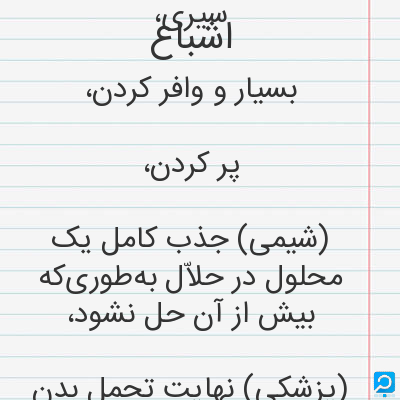 سیری،
اشباع
بسیار و وافر کردن،
پر کردن،
(شیمی) جذب کامل یک
محلول در حلاّل به‌طوری‌که
بیش از آن حل نشود،
(پزشکی) نهایت تحمل بدن